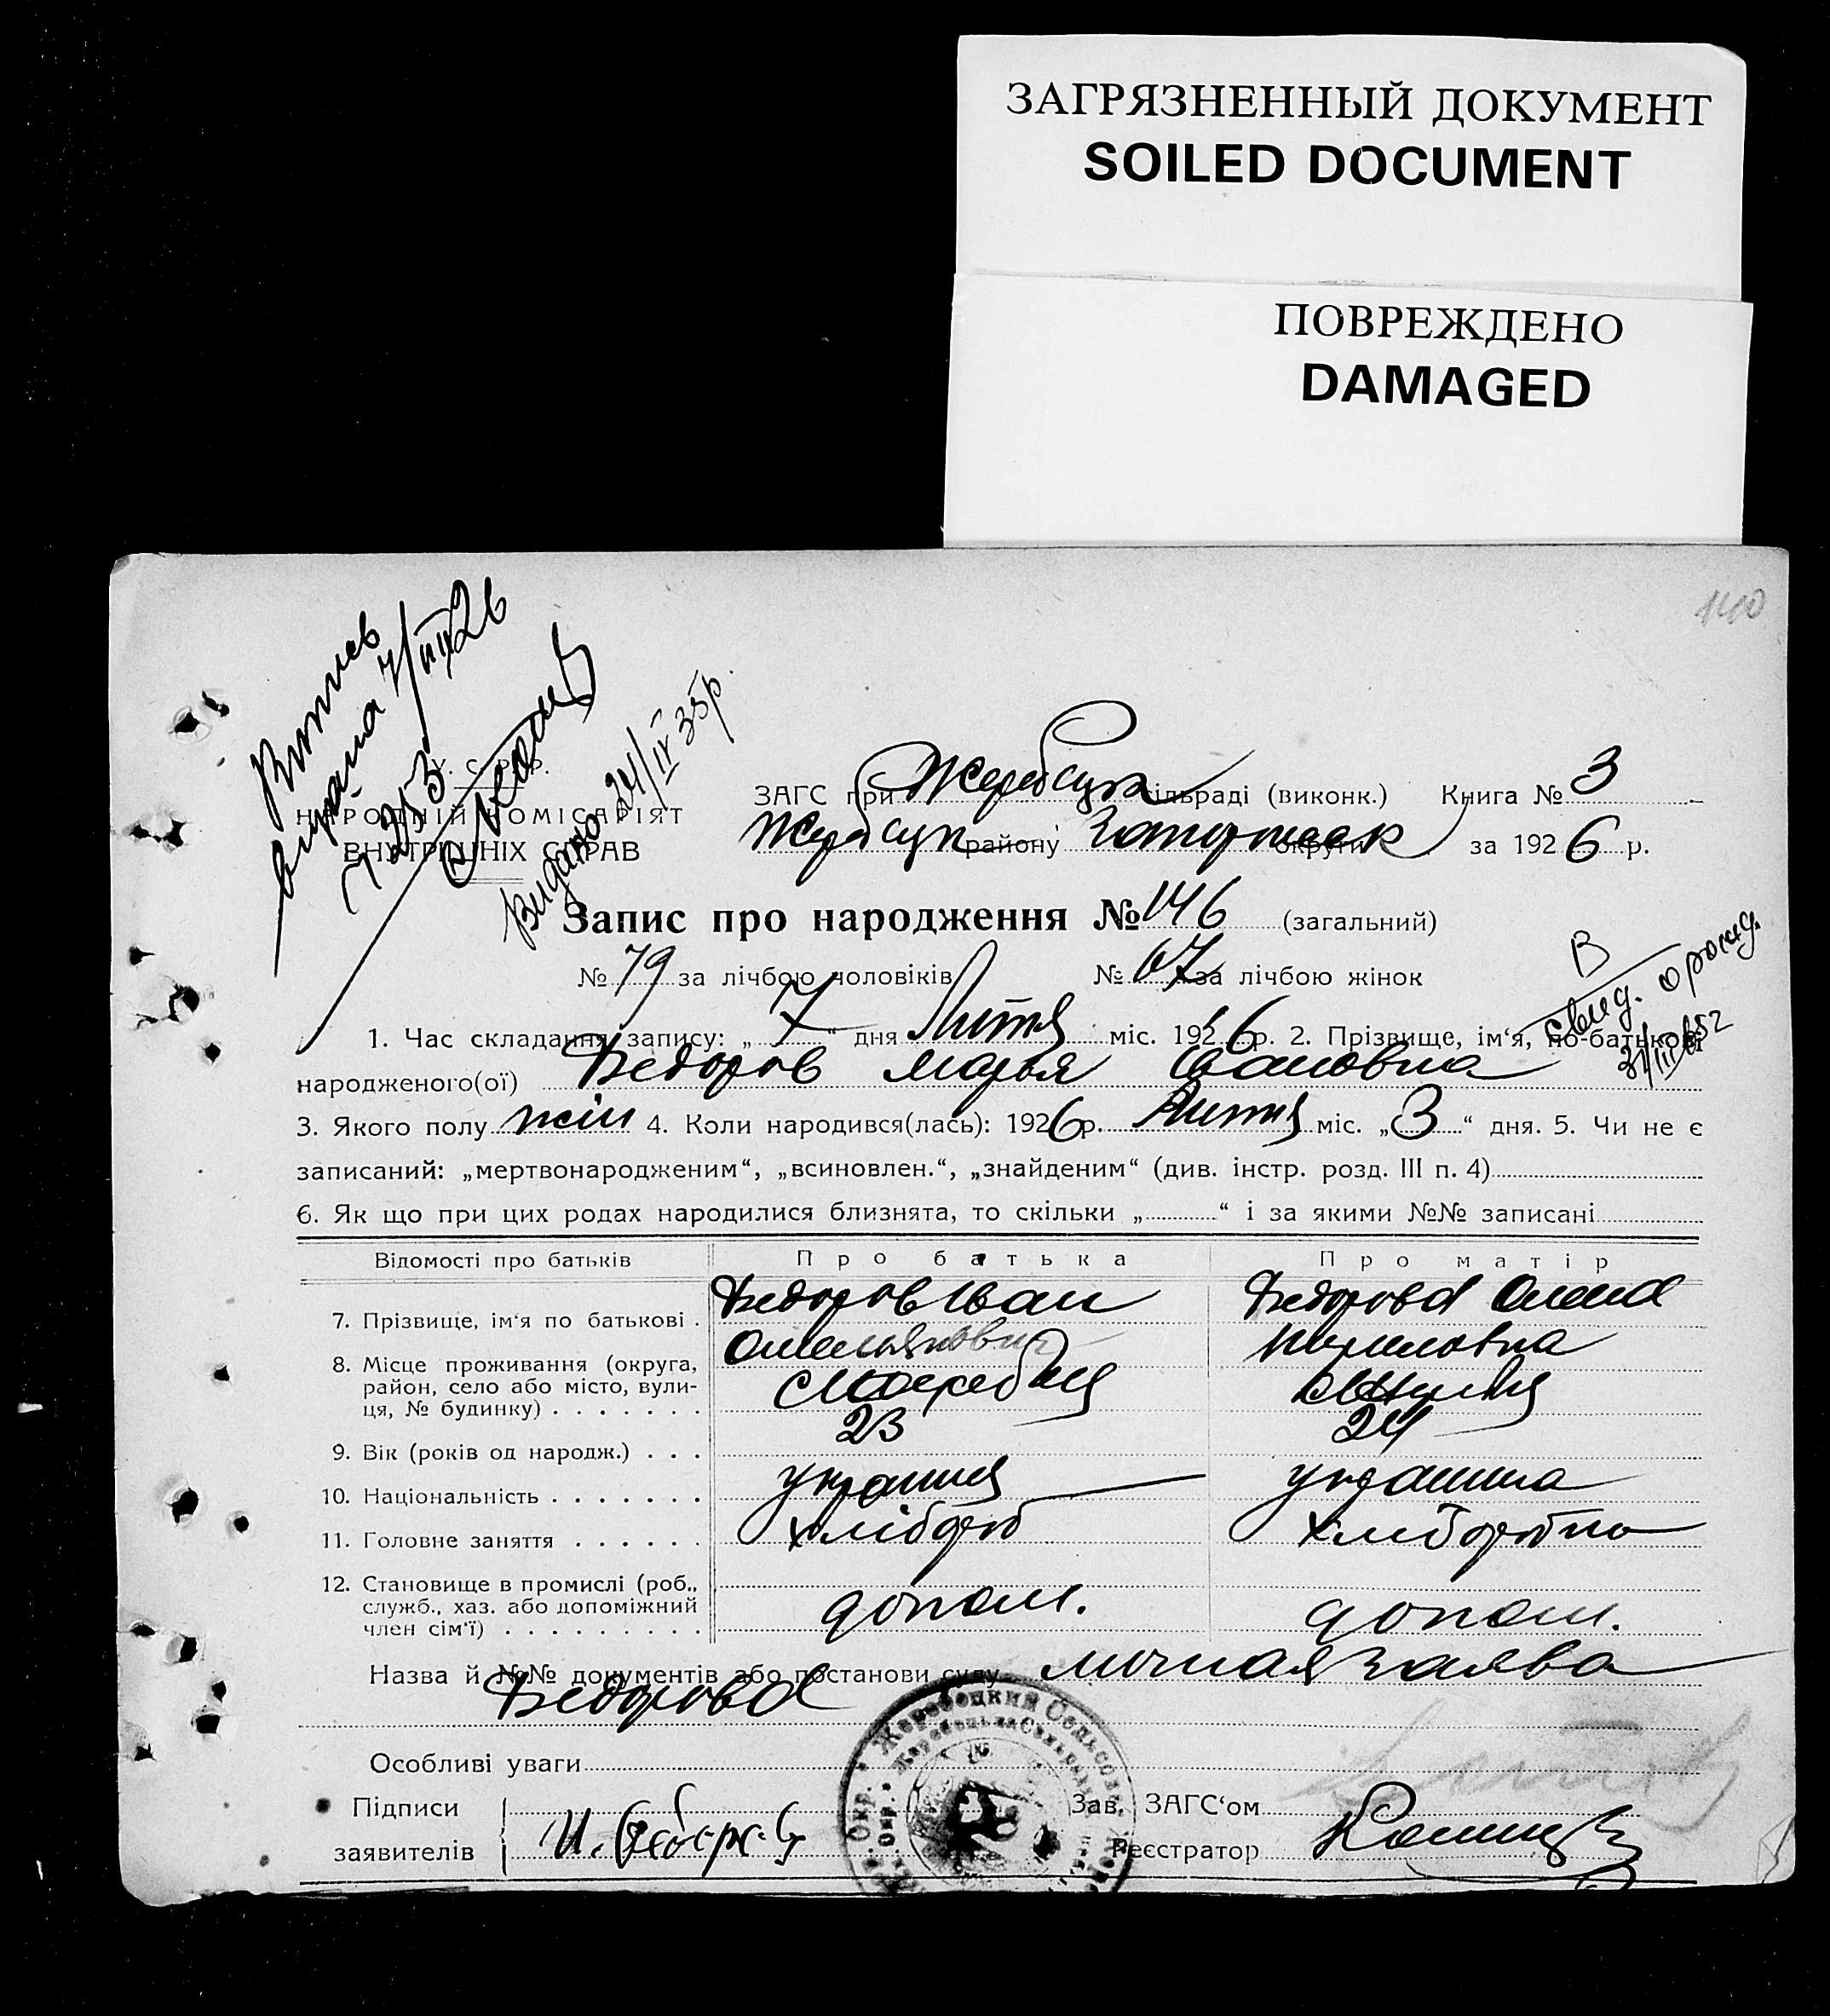 ЗАГРЯЗНЕННЫЙ ДОКУМЕНТ
SOILED DOCUMENT
ПОВРЕЖДЕНО
DAMAGED
1110
Випись
видана 7/III 26
Видано 24/IV 35р.
У. С. Р. Р.
НАРОДНІЙ КОМІСАРІЯТ
ВНУТРІШНІХ СПРАВ
ЗАГС при Жеребецьк сільраді (виконк.) Книга № 3
Жеребецьк району Запоріжськ округи за 1926 р.
Запис про народження № 146 (загальний)
№ 79 за лічбою чоловіків № 67 за лічбою жінок
В
свид. о рожд.
31/III 52
1. Час складання запису: „7“ дня Лютня міс. 1926 р. 2. Прізвище, ім‘я, по-батькові
народженого(ої) Федоров Марья Івановна
3. Якого полу жін 4. Коли народився(лась): 1926 р. Лютня міс. „3“ дня. 5. Чи не є
записаний: „мертвонародженим“, „всиновлен.“, „знайденим“ (див. інстр. розд. III п. 4)
6. Як що при цих родах народилися близнята, то скільки „ “ і за якими №№ записані
Відомості про батьків Про батька Про матір
7. Прізвище, ім‘я по батькові . Федоров Іван Федорова Олена
Омельянович
8. Місце проживання (округа,
район, село або місто, вули-
ця, № будинку) . . . . . . . с Жеребец
9. Вік (років од народж.) . . . 23 24
10. Національність . . . . . . . украинец украинка
11. Головне заняття . . . . . . хлібороб хлиборобка
12. Становище в промислі (роб.,
служб., хаз. або допоміжний
член сім‘ї) . . . . . . . . . допом. допом.
Назва й №№ документів або постанови суду личная заява
Федорова
Особливі уваги
Підписи Зав. ЗАГС‘ом
заявителів И. Федоров Реєстратор
Жеребецкий Сельсовет
Жеребецька Сільрада
Окр.